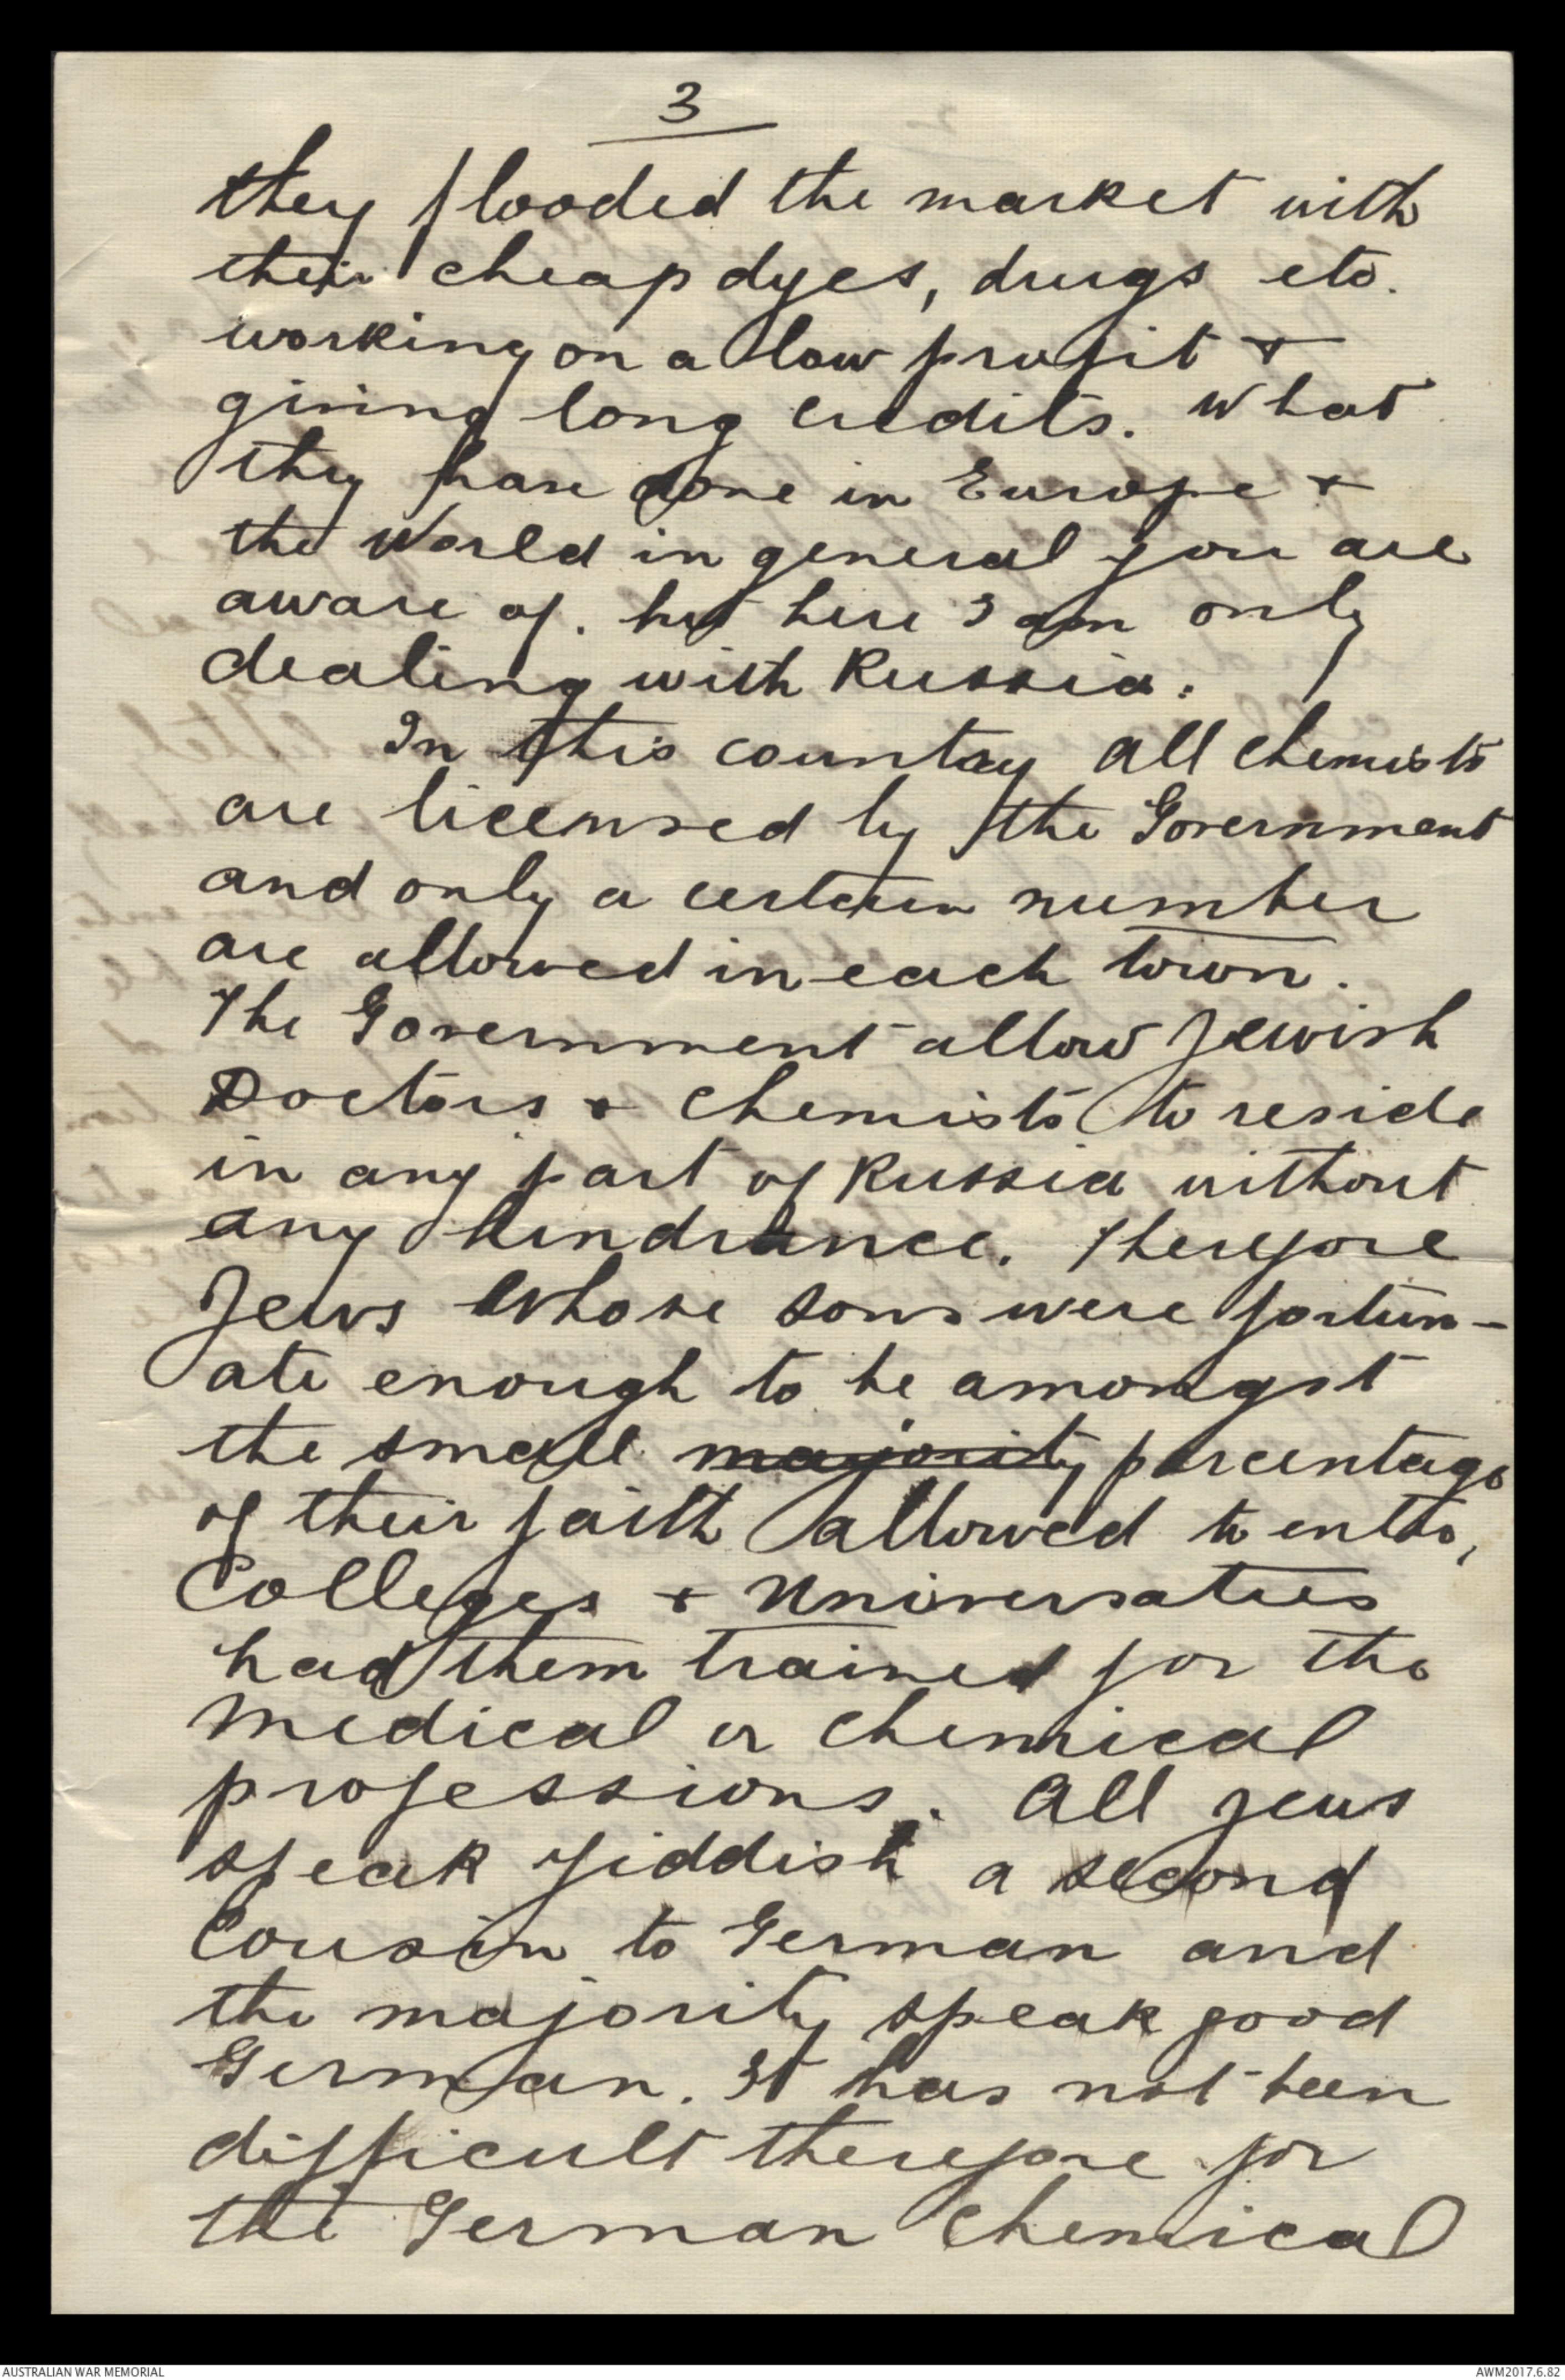 3
they flooded the market with
their cheap dyes, drugs etc.
working on a low profit +
giving long credits. What
they have done in Europe +
the World in general you are
aware of. but here I am only
dealing with Russia.
In this country all chemists
are licensed by the Government
and only a certain number
are allowed in each town.
The Government allow Jewish
Doctors + Chemists to reside
in any part of Russia without
any hindrance. Therefore
Jews whose sons were fortun-
ate enough to be amongst
the small majority percentage
of their faith allowed to enter,
Colleges + Universaties
had them trained for the
Medical or Chemical
professions. All Jews
speak Yiddish a second
Cousin to German and
the majority speak good
German. It has not been
difficult therefore for
the German Chemical
AUSTRALIAN WAR MEMORIAL
AWM2017.6.82